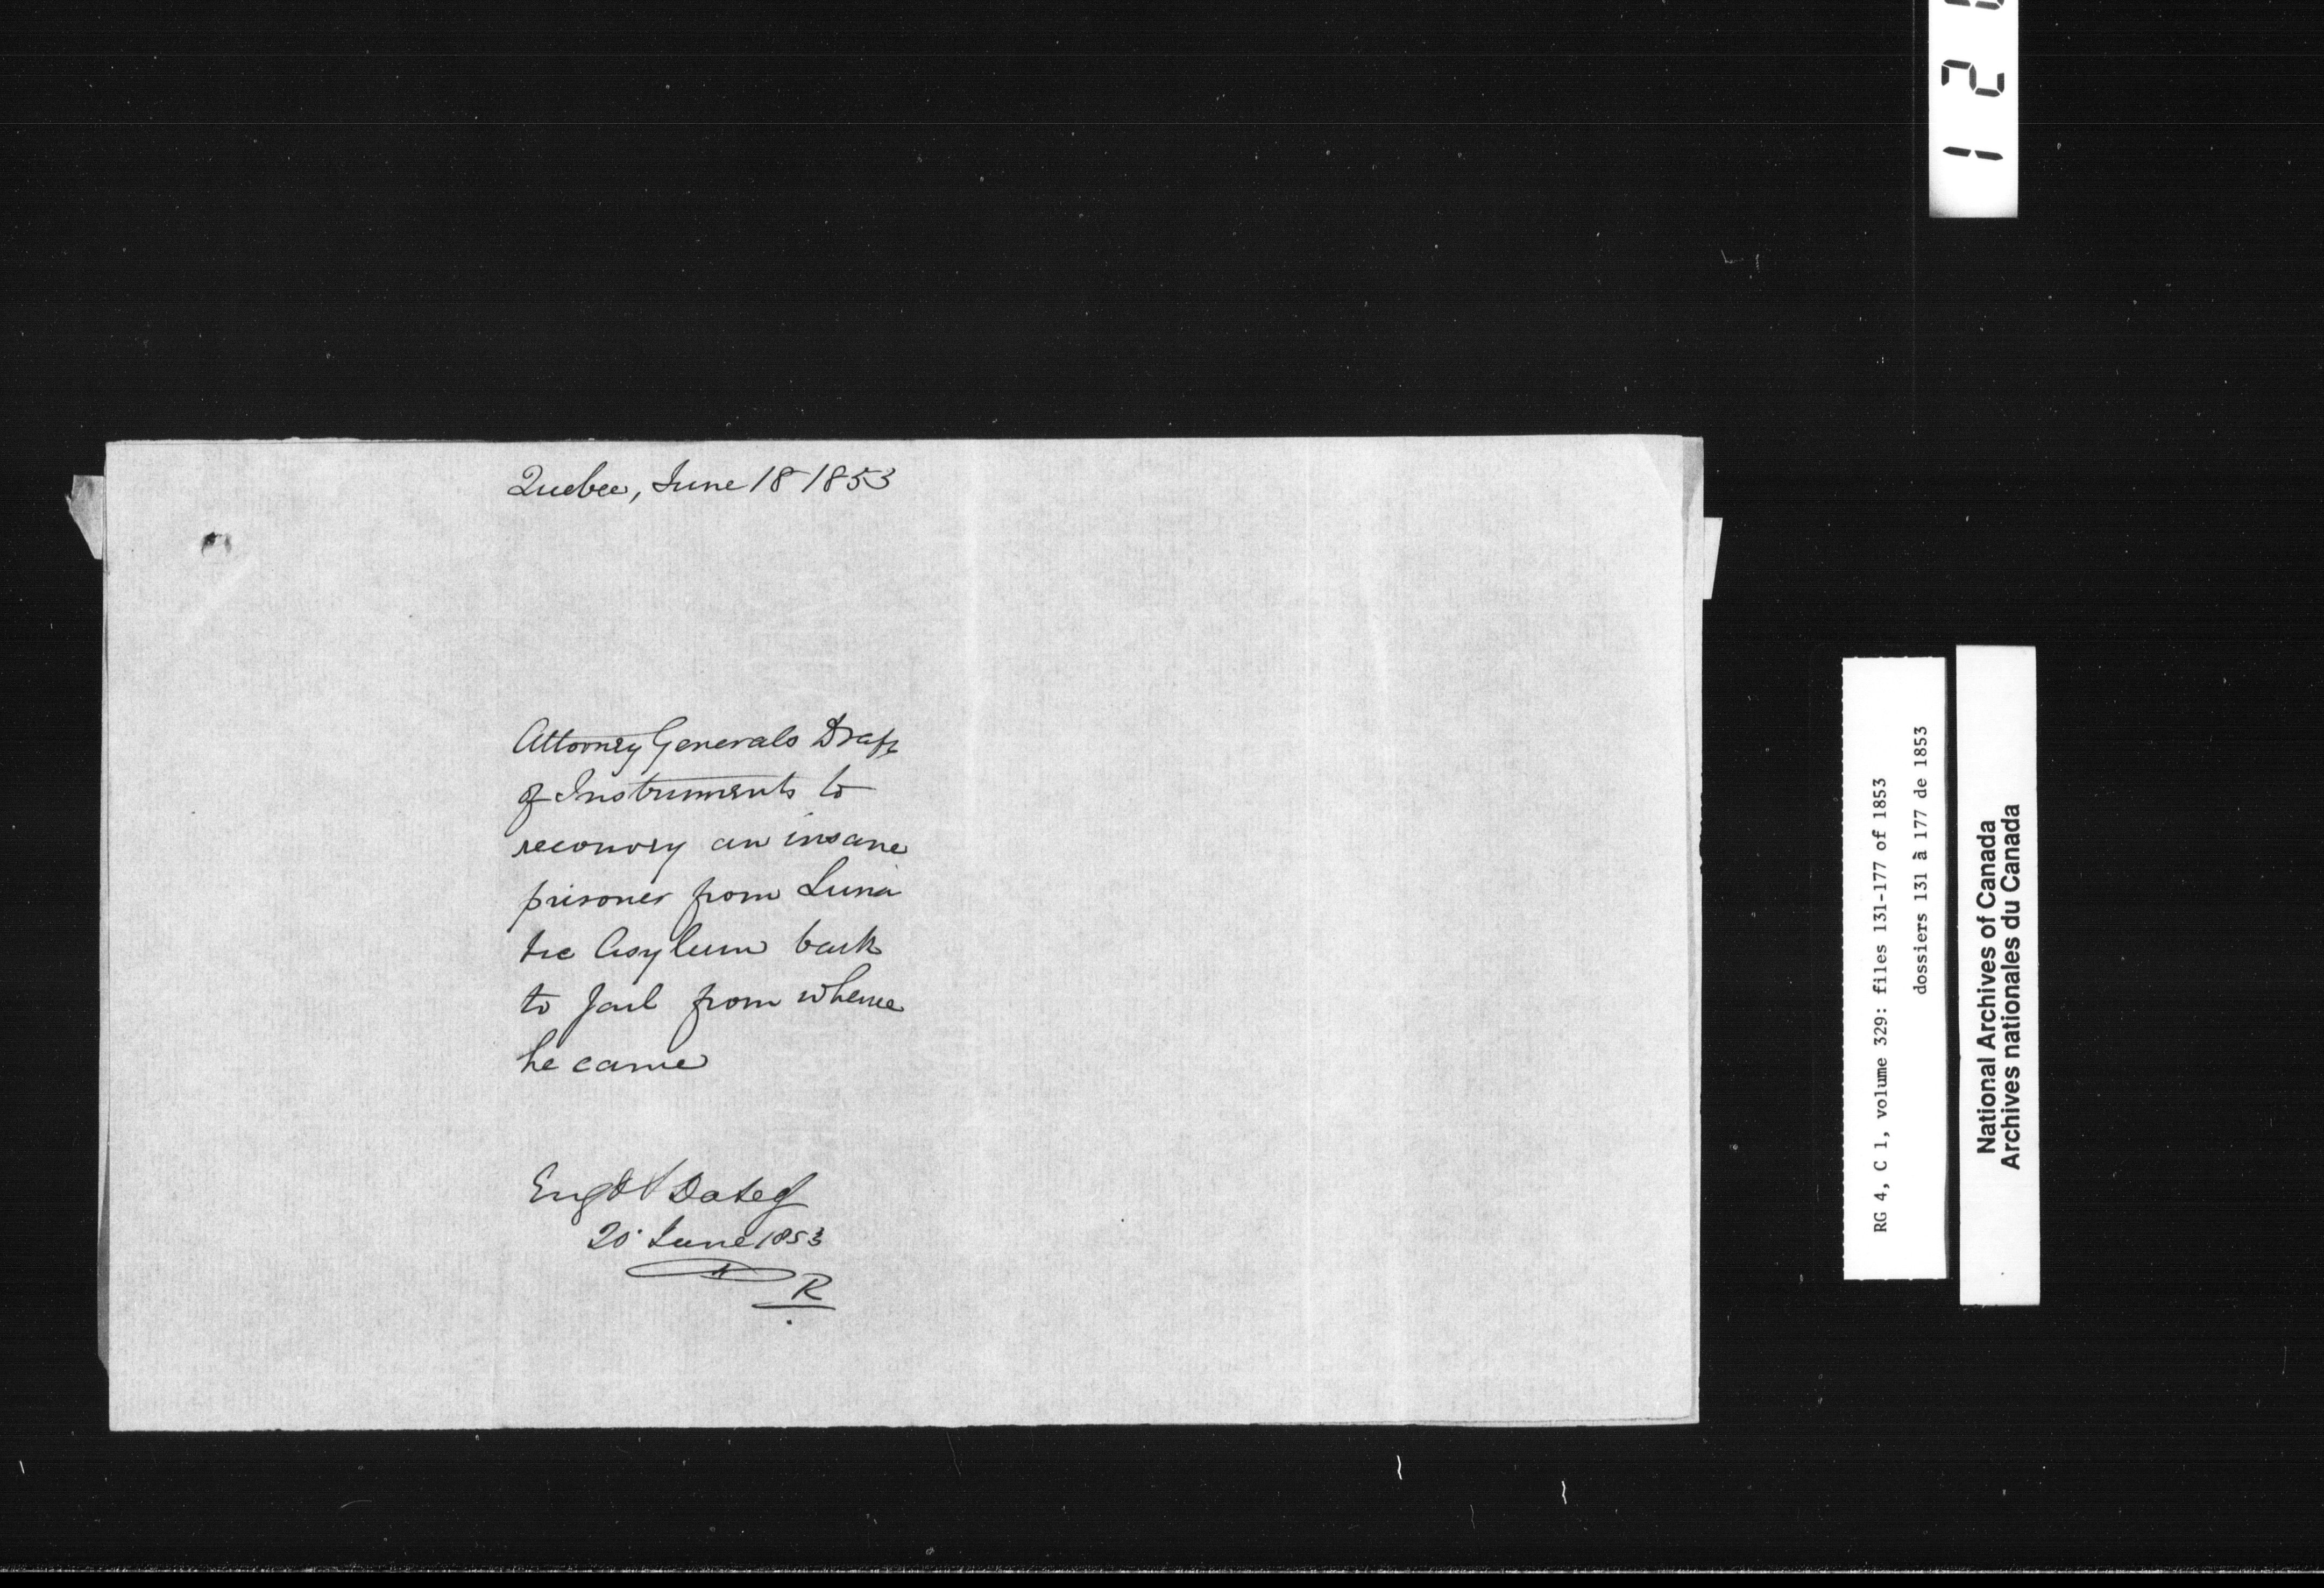 Quebec, June 18 1853
Attorney Generals Draft
of Instruments to
reconvey an insane
prisoner from Luna
tic Asylum back
to Jail from whence
he came
Engd & Dated
20 June 1853
R
RG 4, C 1, volume 329: files 131-177 of 1853
dossiers 131 à 177 de 1853
National Archives of Canada
Archives nationales du Canada
1 2